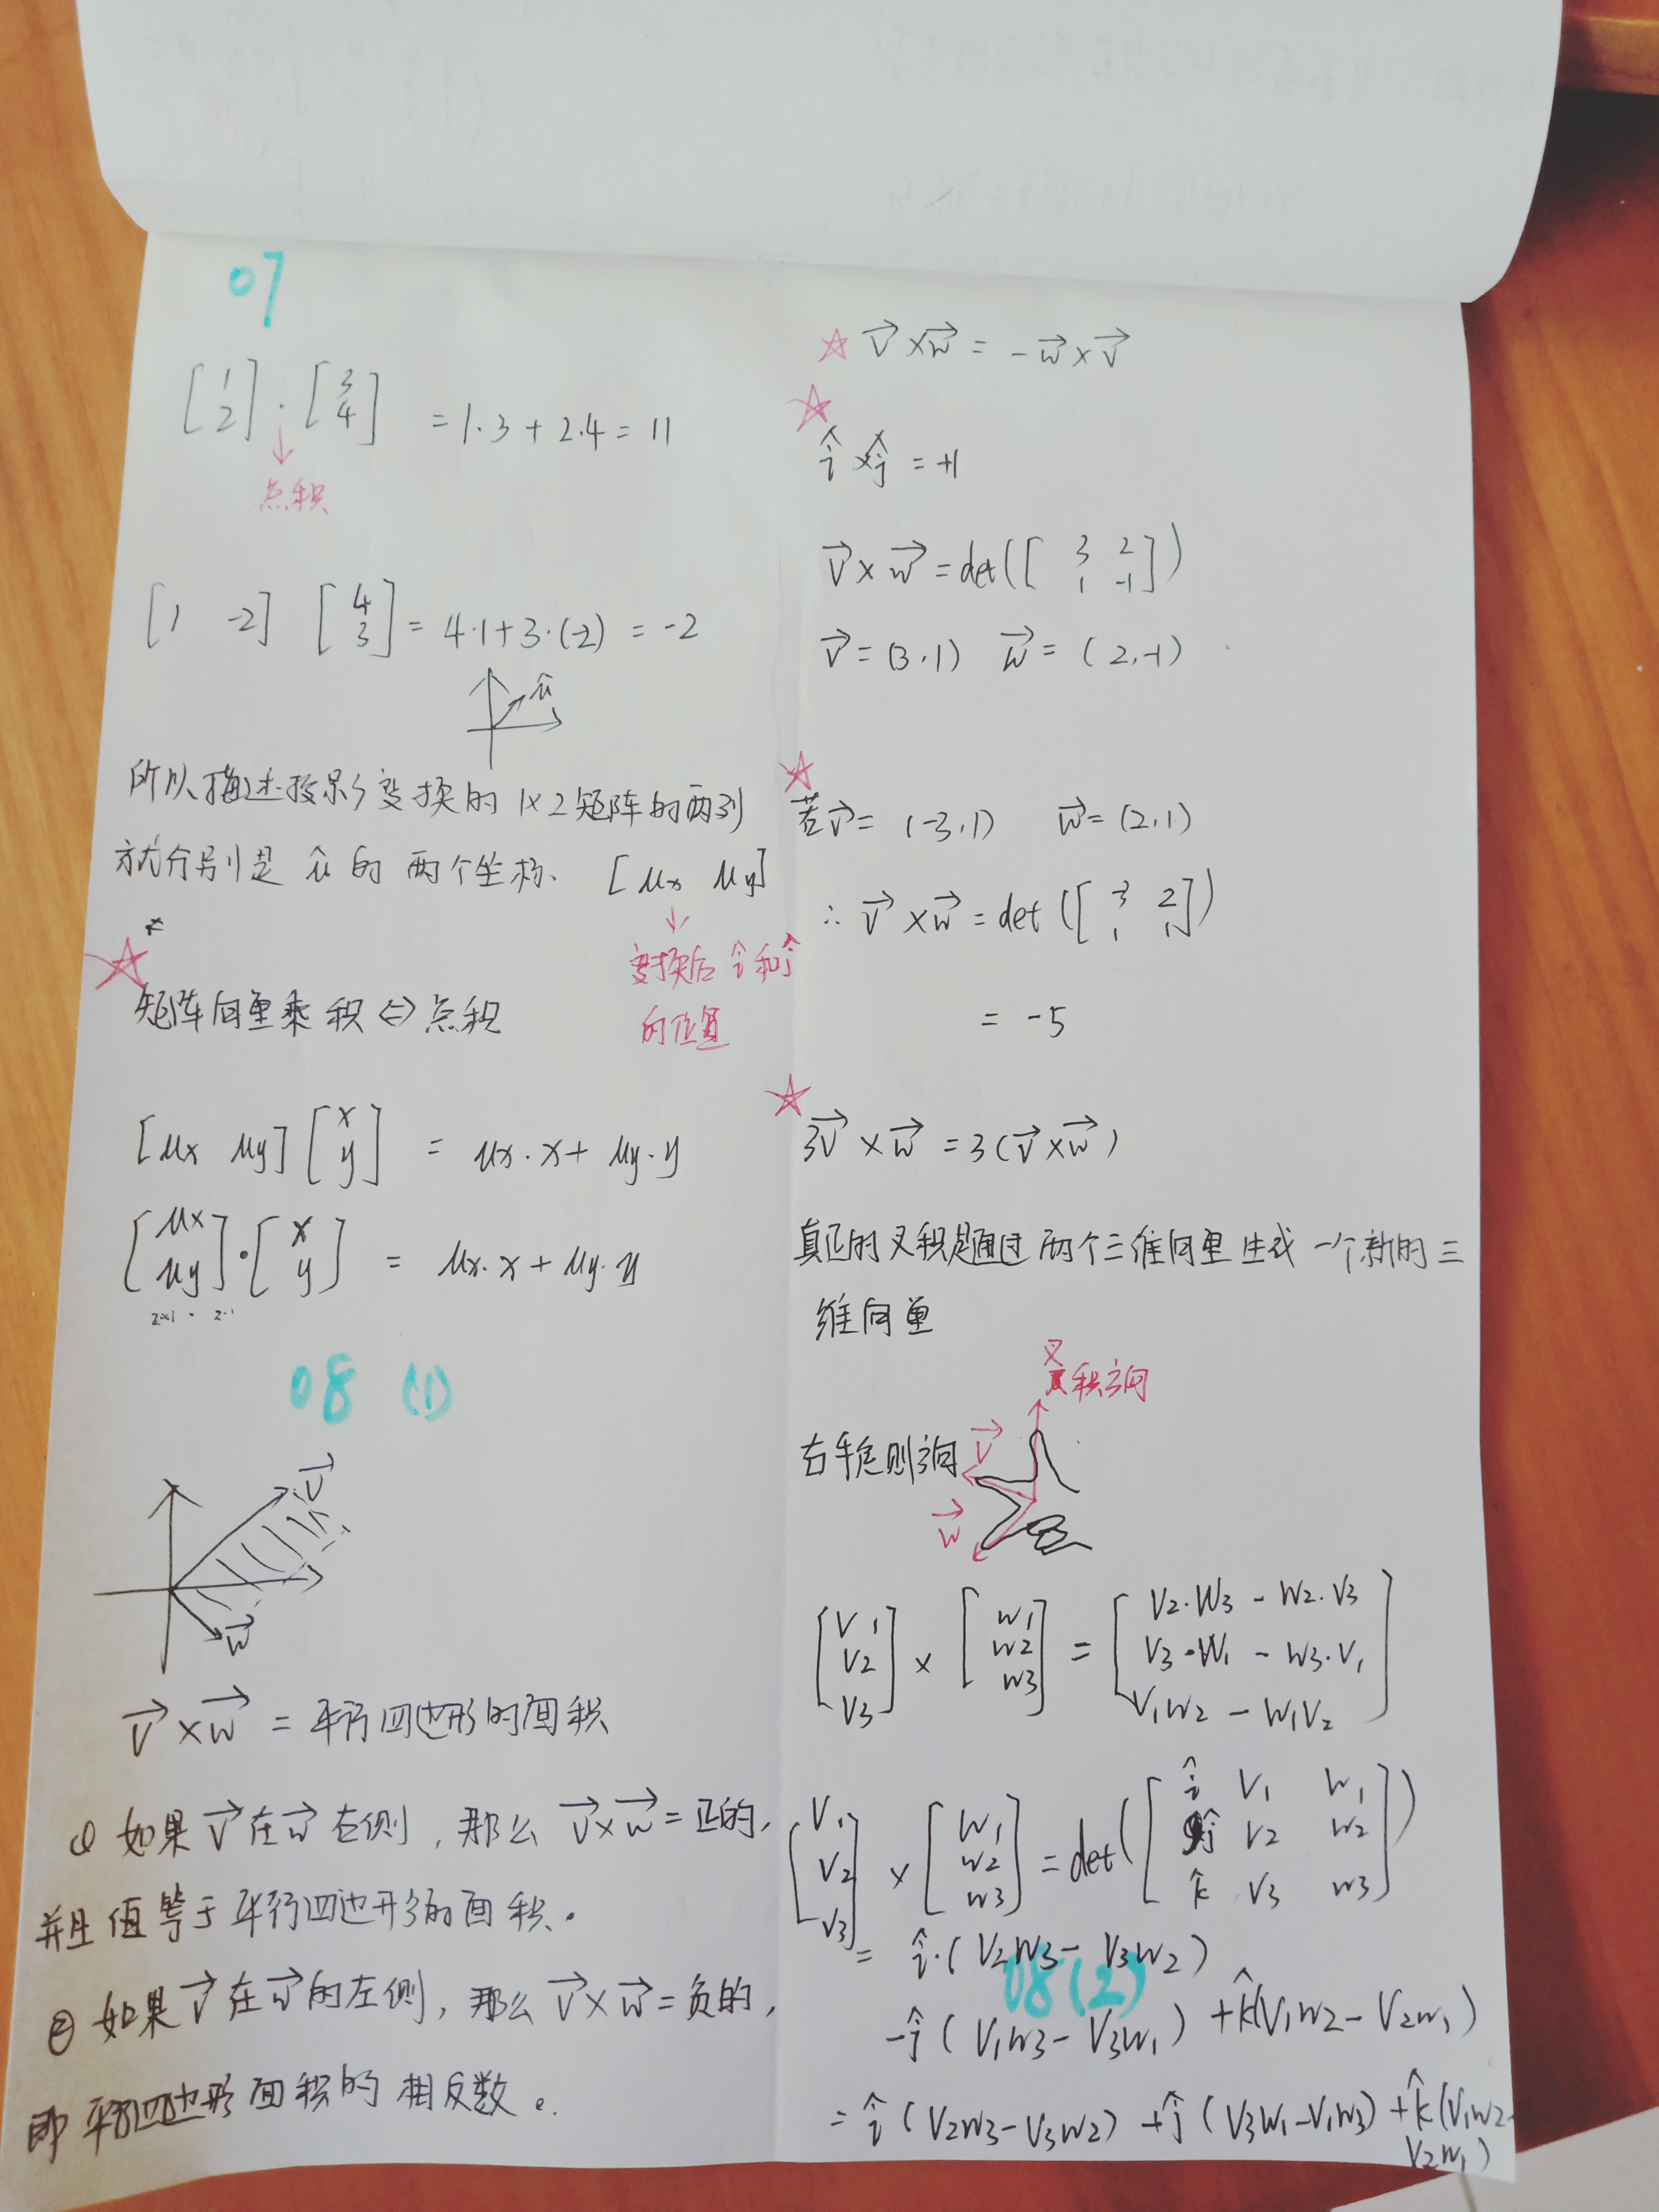 07
[1 2] · [3 4] = 1·3 + 2·4 = 11
点积
[1 -2] [4 3] = 4·1+3·(-2) = -2
û
所以描述投影变换的1×2矩阵的两列
就分别是 û 的 两个坐标. [μx μy]
变换后 î和ĵ
的位置
矩阵向量乘积⇔点积
[μx μy] [x y] = μx·x + μy·y
[μx μy]·[x y] = μx·x + μy·y
08 (1)
v⃗
w⃗
v⃗ × w⃗ = 平行四边形的面积
① 如果 v⃗ 在 w⃗ 右侧, 那么 v⃗×w⃗ = 正的,
并且值等于平行四边形的面积.
② 如果 v⃗ 在 w⃗ 的左侧, 那么 v⃗×w⃗ = 负的,
即平行四边形面积的相反数.
v⃗ × w⃗ = -w⃗ × v⃗
î × ĵ = +1
v⃗ × w⃗ = det([3 2 1 -1])
v⃗ = (3,1) w⃗ = (2,-1)
若v⃗ = (-3,1) w⃗ = (2,1)
∴ v⃗ × w⃗ = det([-3 2 1 1])
= -5
3v⃗ × w⃗ = 3(v⃗ × w⃗)
真正的叉积是通过两个三维向量生成一个新的三
维向量
叉
积方向
右手定则方向
v⃗
w⃗
[V1 V2 V3] × [W1 W2 W3] = [V2·W3 - W2·V3 V3·W1 - W3·V1 V1W2 - W1V2]
[V1 V2 V3] × [W1 W2 W3] = det([î V1 W1 ĵ V2 W2 k̂ V3 W3])
= î·(V2W3 - V3W2)
08(2)
-ĵ(V1W3 - V3W1) + k̂(V1W2 - V2W1)
= î(V2W3 - V3W2) + ĵ(V3W1 - V1W3) + k̂(V1W2 -
V2W1)